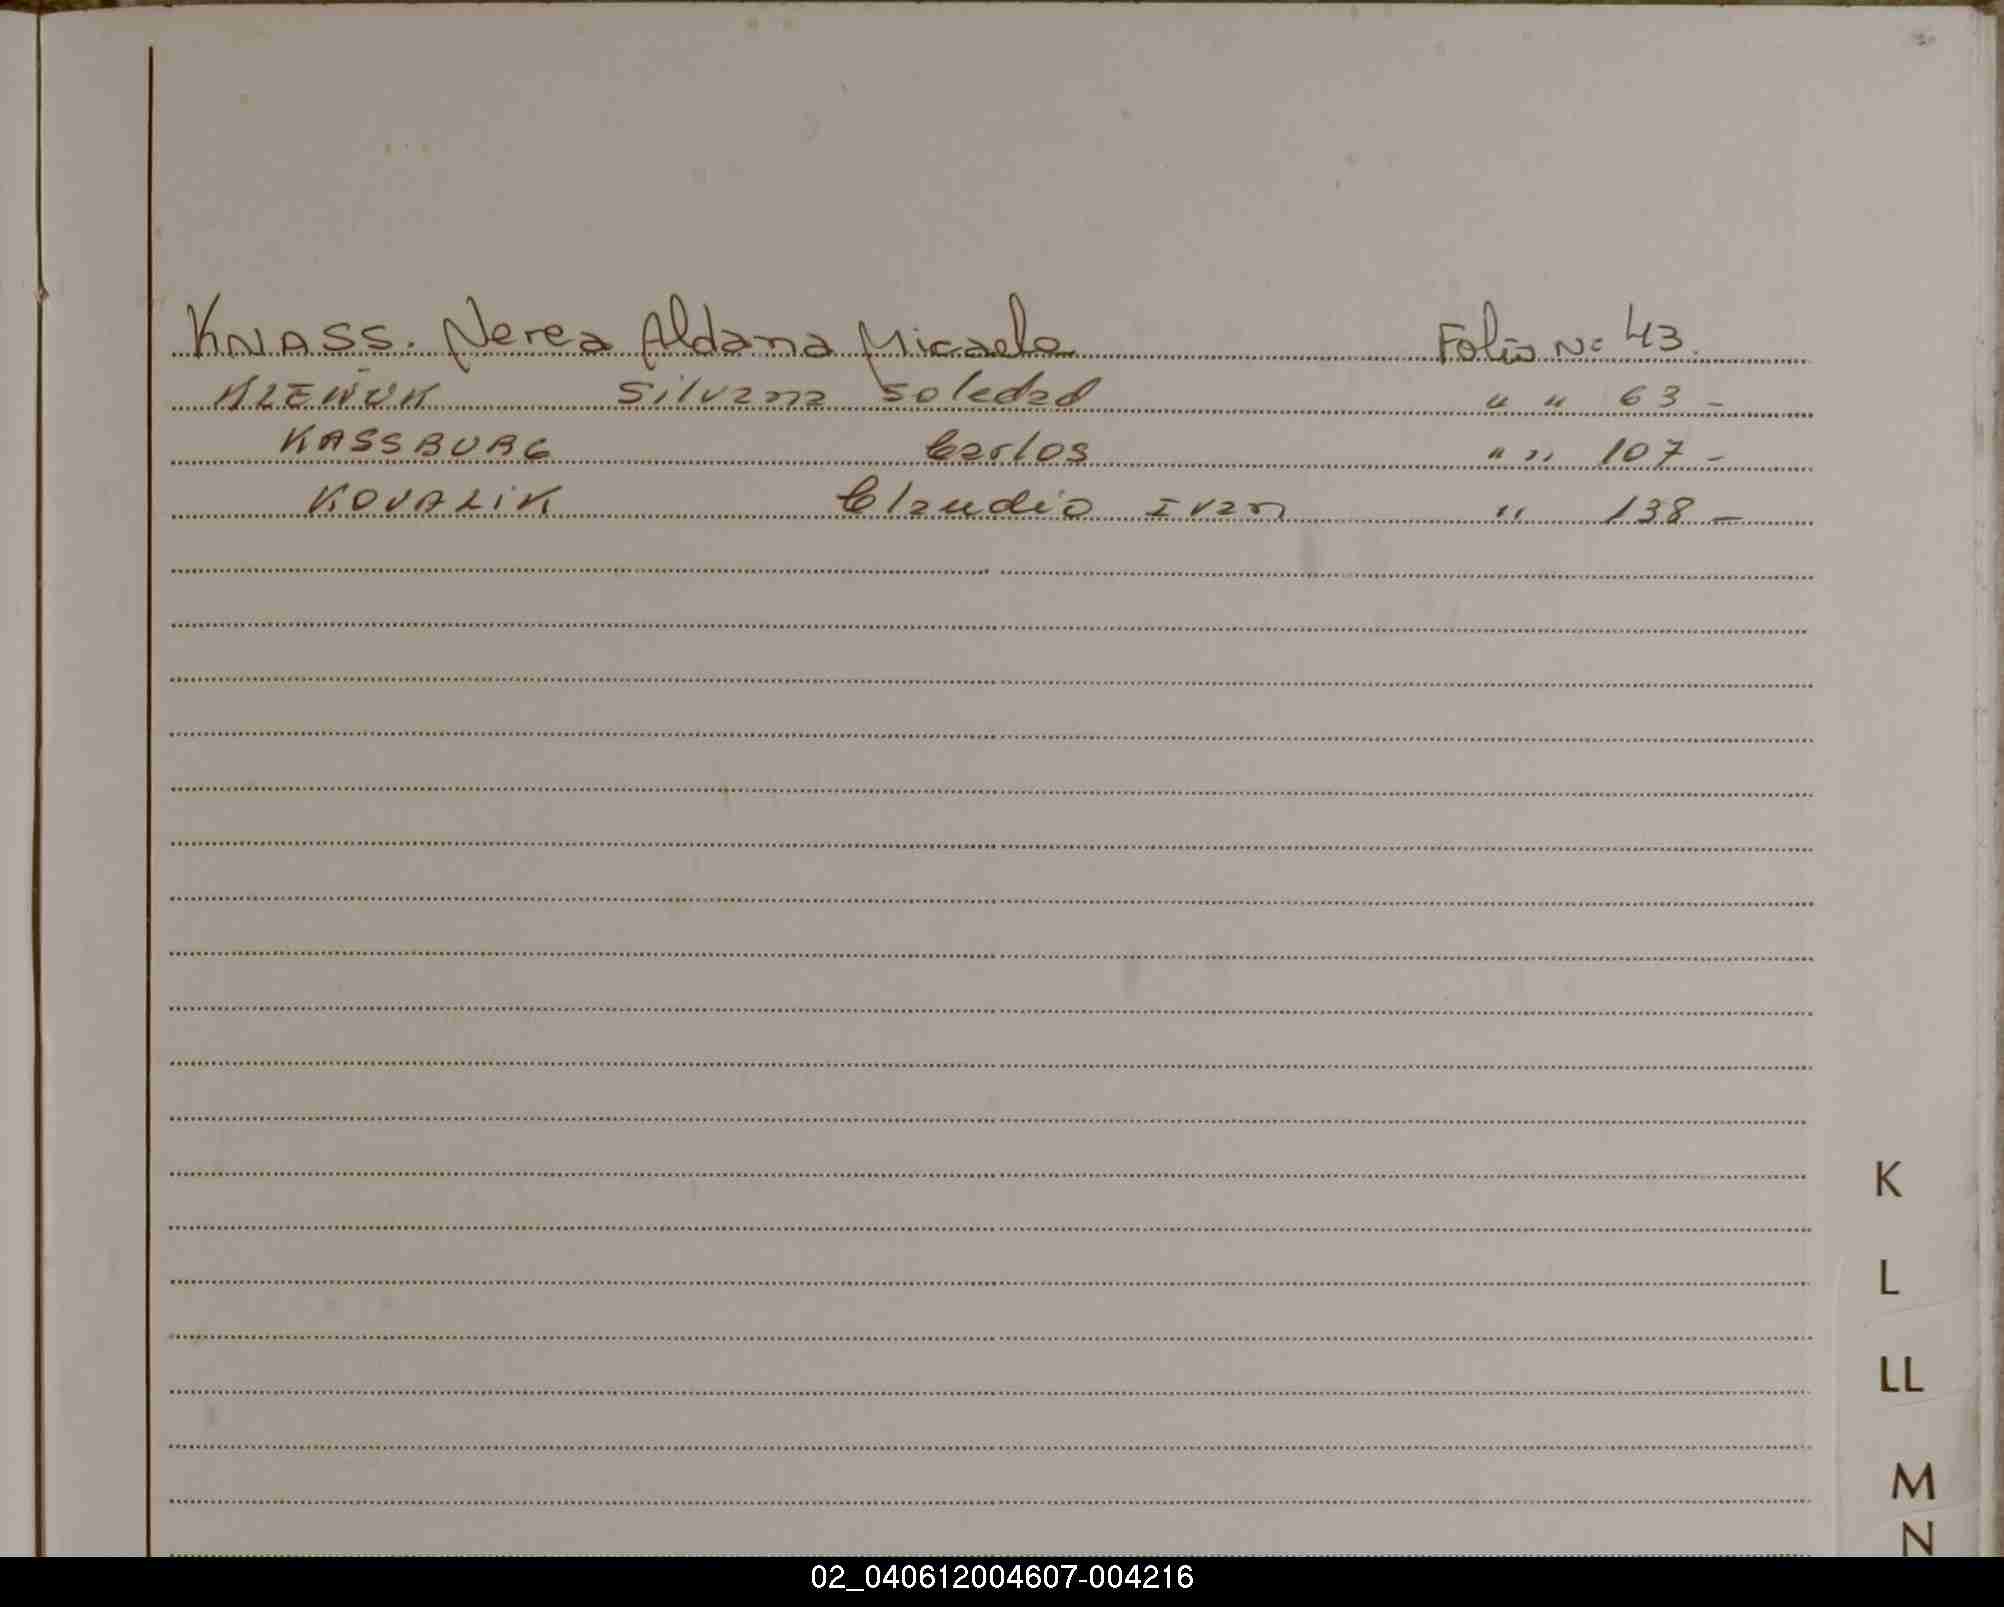 KNASS. Nerea Aldana Micaela Folio Nº 43.
KLEWUK Silvana Soledad " " 63 -
KASSBURG Carlos " " 107 -
KOVALIK Claudio Ivan " 138 -
K
L
LL
M
N
02_040612004607-004216